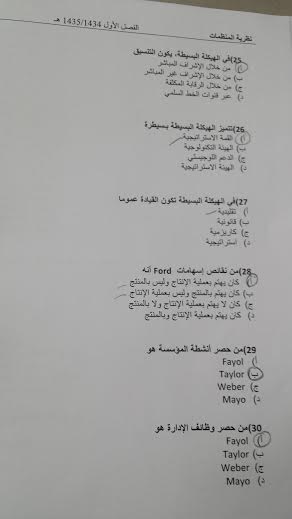 نظرية المنظمات
الفصل الأول 1435/1434 هـ
25)في الهيكلة البسيطة، يكون التنسيق
أ) من خلال الإشراف المباشر
ب) من خلال الإشراف غير المباشر
ج) من خلال الرقابة المكثفة
د) عبر قنوات الخط السلمي
26)تتميز الهيكلة البسيطة بسيطرة
أ) القمة الاستراتيجية
ب) الهيئة التكنولوجية
ج) الدعم اللوجيستي
د) الهيئة الاستراتيجية
27)في الهيكلة البسيطة تكون القيادة عموما
أ) تقليدية
ب) قانونية
ج) كاريزمية
د) استراتيجية
28)من نقائص إسهامات Ford أنه
أ) كان يهتم بعملية الإنتاج وليس بالمنتج
ب) كان يهتم بالمنتج وليس بعملية الإنتاج
ج) كان لا يهتم بعملية الإنتاج ولا بالمنتج
د) كان يهتم بعملية الإنتاج وبالمنتج
29)من حصر أنشطة المؤسسة هو
أ) Fayol
ب) Taylor
ج) Weber
د) Mayo
30)من حصر وظائف الإدارة هو
أ) Fayol
ب) Taylor
ج) Weber
د) Mayo